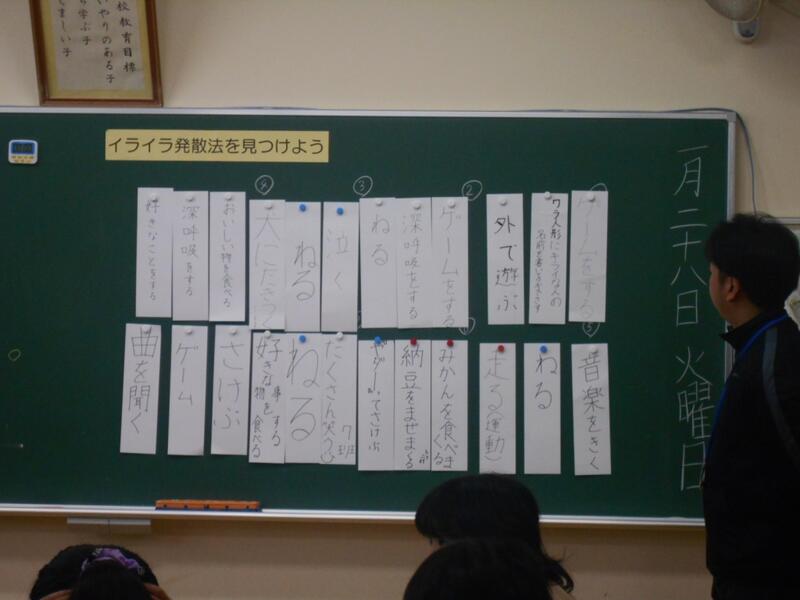 校教育目標
いやりのある子
ら学ぶ子
くましい子
イライラ発散法を見つけよう
一月二十八日 火曜日
ゲームをする
ワラ人形にキライな人の
外で遊ぶ
②
ゲームをする
深呼吸をする
③
ねる
泣く
ねる
犬にだきつ
おいしい物を食べる
深呼吸をする
好きなことをする
⑤
音楽をきく
ねる
走る(運動)
みかんを食べまくる
納豆をまぜまくる
てさけぶ
たくさん笑う
7班
ねる
好きな事をする
物を食べる
さけぶ
ゲーム
曲を聞く